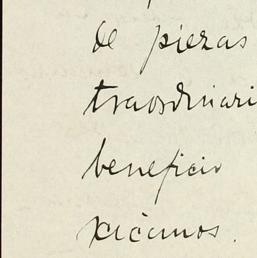 de piezas
traordinari
beneficio
xicanos.